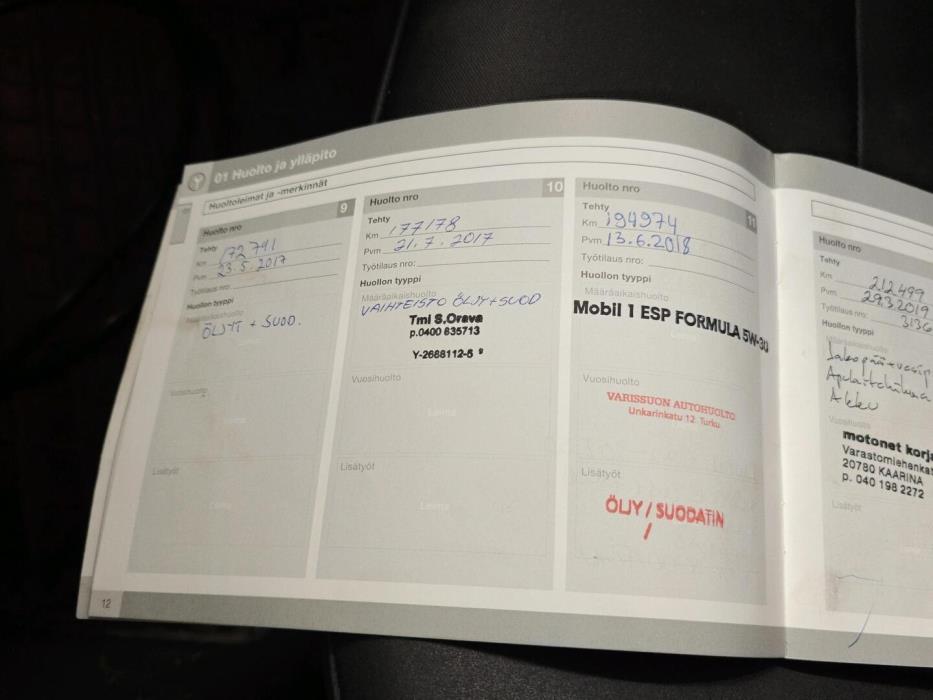 01 Huolto ja ylläpito
Huoltoleimat ja -merkinnät
Huolto nro 9
Tehty
Km 172791
Pvm 23.5.2017
Työtilaus nro:
Huollon tyyppi
Määräaikaishuolto
ÖLJYT + SUOD.
Vuosihuolto
Leima
Lisätyöt
Leima
Huolto nro 10
Tehty
Km 177178
Pvm 21.7.2017
Työtilaus nro:
Huollon tyyppi
Määräaikaishuolto
VAIHTEISTO ÖLJY+SUOD
Tmi S.Orava
p.0400 635713
Y-2688112-5
Vuosihuolto
Leima
Lisätyöt
Leima
Huolto nro 11
Tehty
Km 194974
Pvm 13.6.2018
Työtilaus nro:
Huollon tyyppi
Määräaikaishuolto
Mobil 1 ESP FORMULA 5W-30
Leima
Vuosihuolto
VARISSUON AUTOHUOLTO
Unkarinkatu 12 Turku
Lisätyöt
ÖLJY / SUODATIN
/
12
Huolto nro
Tehty
Km 212499
Pvm 29.3.2019
Työtilaus nro: 3136
Huollon tyyppi
Määräaikaishuolto
Jakopää+vesip
Apulaitehihna
Akku
Vuosihuolto
motonet korja
Varastomiehenka
20780 KAARINA
p. 040 198 2272
Lisätyöt